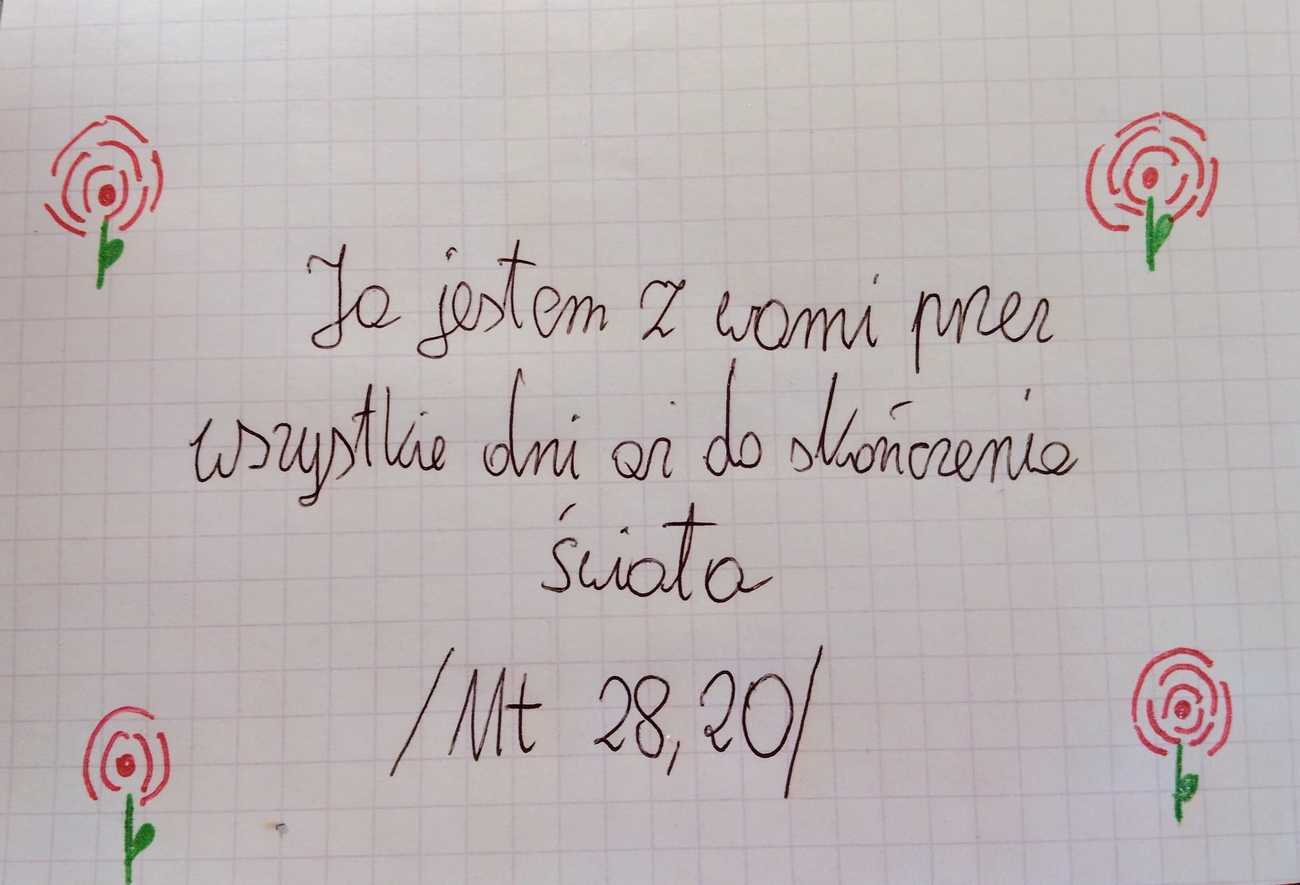 Ja jestem z wami przez
wszystkie dni aż do skończenia
świata
/Mt 28,20/